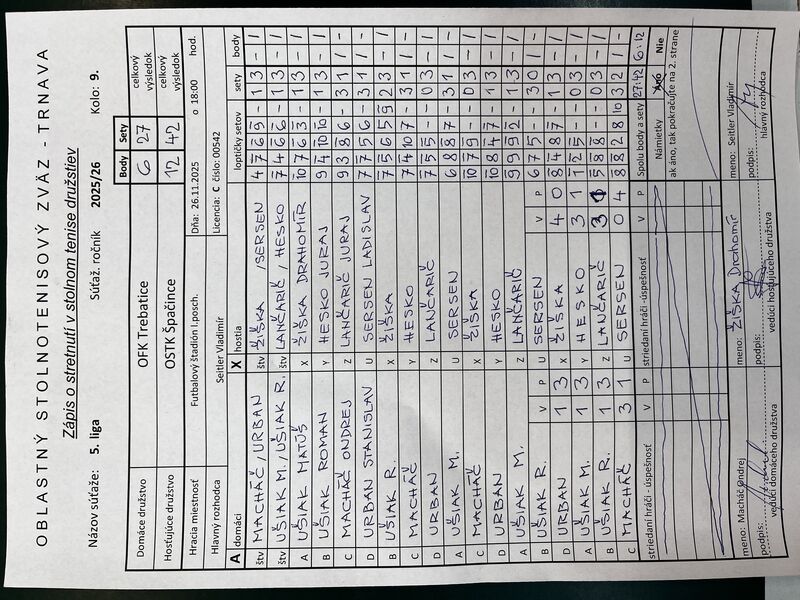 OBLASTNÝ STOLNOTENISOVÝ ZVÄZ - TRNAVA
Zápis o stretnutí v stolnom tenise družstiev
Názov súťaže: 5. liga Súťaž. ročník 2025/26 Kolo: 9.
Body Sety
Domáce družstvo OFK Trebatice 6 27 celkový výsledok
Hosťujúce družstvo OSTK Špačince 12 42 celkový výsledok
Hracia miestnosť Futbalový štadión I.posch. Dňa: 26.11.2025 o 18:00 hod.
Hlavný rozhodca Seitler Vladimír Licencia: C číslo: 00542
A domáci X hostia loptičky setov sety body
štv MACHÁČ/URBAN štv ŽIŠKA/SERSEN 4 7 6 9 - 1 3 - 1
štv UŠIAK M./UŠIAK R. štv LANČARIČ/HESKO 7 4 6 6 - 1 3 - 1
A UŠIAK MATÚŠ X ŽIŠKA DRAHOMÍR 10 7 6 3 - 1 3 - 1
B UŠIAK ROMAN Y HESKO JURAJ 9 4 10 10 - 1 3 - 1
C MACHÁČ ONDREJ Z LANČARIČ JURAJ 9 3 8 6 - 3 1 1 -
D URBAN STANISLAV U SERSEN LADISLAV 7 7 5 6 - 3 1 1 -
B UŠIAK R. X ŽIŠKA 7 5 6 5 9 2 3 - 1
C MACHÁČ Y HESKO 7 4 10 7 - 3 1 1 -
D URBAN Z LANČARIČ 7 5 5 - - 0 3 - 1
A UŠIAK M. U SERSEN 6 8 8 7 - 3 1 1 -
C MACHÁČ X ŽIŠKA 10 7 9 - - 0 3 - 1
D URBAN Y HESKO 10 8 4 7 - 1 3 - 1
A UŠIAK M. Z LANČARIČ 9 9 9 2 - 1 3 - 1
B UŠIAK R. U SERSEN 6 7 5 - - 3 0 1 -
D URBAN X ŽIŠKA 8 4 8 7 - 1 3 - 1
A UŠIAK M. Y HESKO 1 2 5 - - 0 3 - 1
B UŠIAK R. Z LANČARIČ 5 8 8 - - 0 3 - 1
C MACHÁČ U SERSEN 8 8 2 8 10 3 2 1 -
V P V P
1 3 4 0
1 3 3 1
1 3 3 1
3 1 0 4
striedaní hráči - úspešnosť V P striedaní hráči -úspešnosť V P Spolu body a sety 27:42 6:12
Námietky Áno Nie
ak áno, tak pokračujte na 2. strane
meno: Macháč Ondrej meno: ŽIŠKA Drahomír meno: Seitler Vladimír
podpis: podpis: podpis:
vedúci domáceho družstva vedúci hosťujúceho družstva hlavný rozhodca